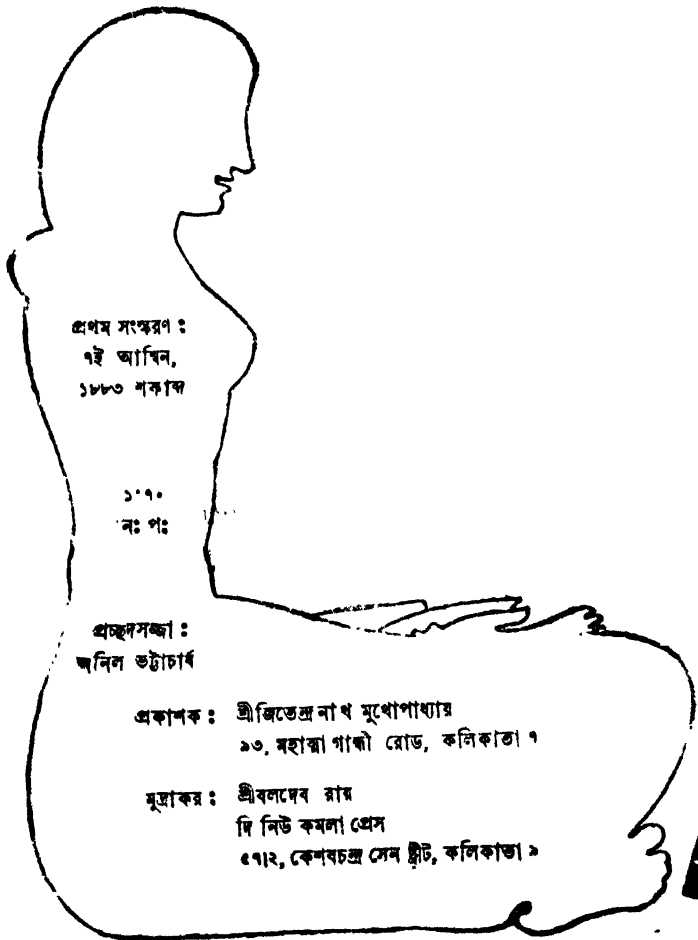 প্রথম সংস্করণ :
৭ই আশ্বিন,
১৮৮৩ শকাব্দ
১·৭০
নঃ পঃ
প্রচ্ছদসজ্জা :
অনিল ভট্টাচার্য
প্রকাশক : শ্রীজিতেন্দ্র নাথ মুখোপাধ্যায়
৯৩, মহাত্মা গান্ধী রোড, কলিকাতা ৭
মুদ্রাকর : শ্রীবলদেব রায়
দি নিউ কমলা প্রেস
৫৭|২, কেশবচন্দ্র সেন ষ্ট্রীট, কলিকাতা ৯